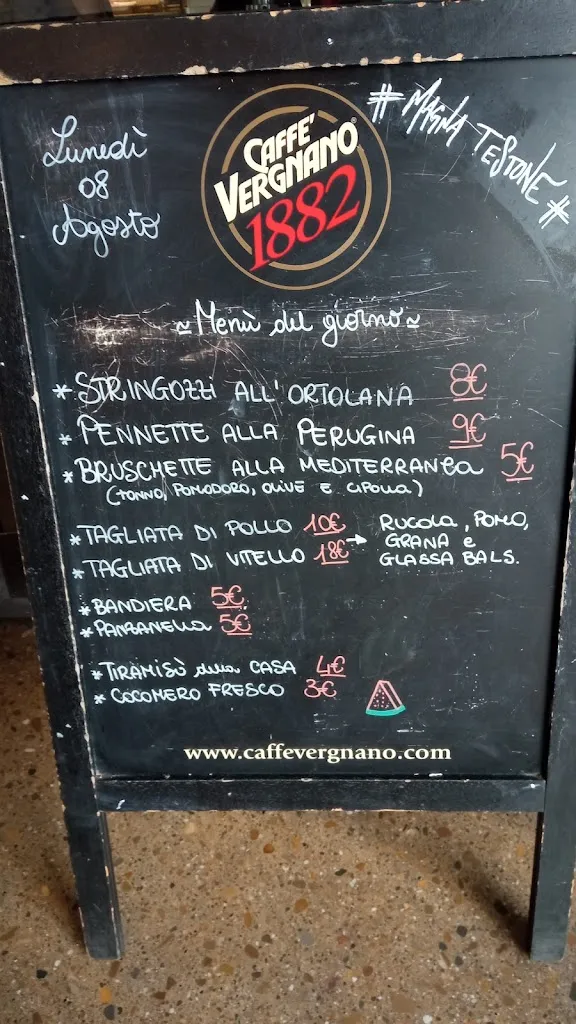 Lunedì
08
Agosto
CAFFE'
VERGNANO®
1882
# MAGNA TESTONE #
~ Menù del giorno ~
* STRINGOZZI ALL'ORTOLANA 8€
* PENNETTE ALLA PERUGINA 9€
* BRUSCHETTE ALLA MEDITERRANEA 5€
(TONNO, POMODORO, OLIVE E CIPOLLA)
* TAGLIATA DI POLLO 10€
* TAGLIATA DI VITELLO 18€ →
RUCOLA, POMO,
GRANA e
GLASSA BALS.
* BANDIERA 5€
* PANZANELLA 5€
* TIRAMISÙ della CASA 4€
* COCOMERO FRESCO 3€
www.caffevergnano.com